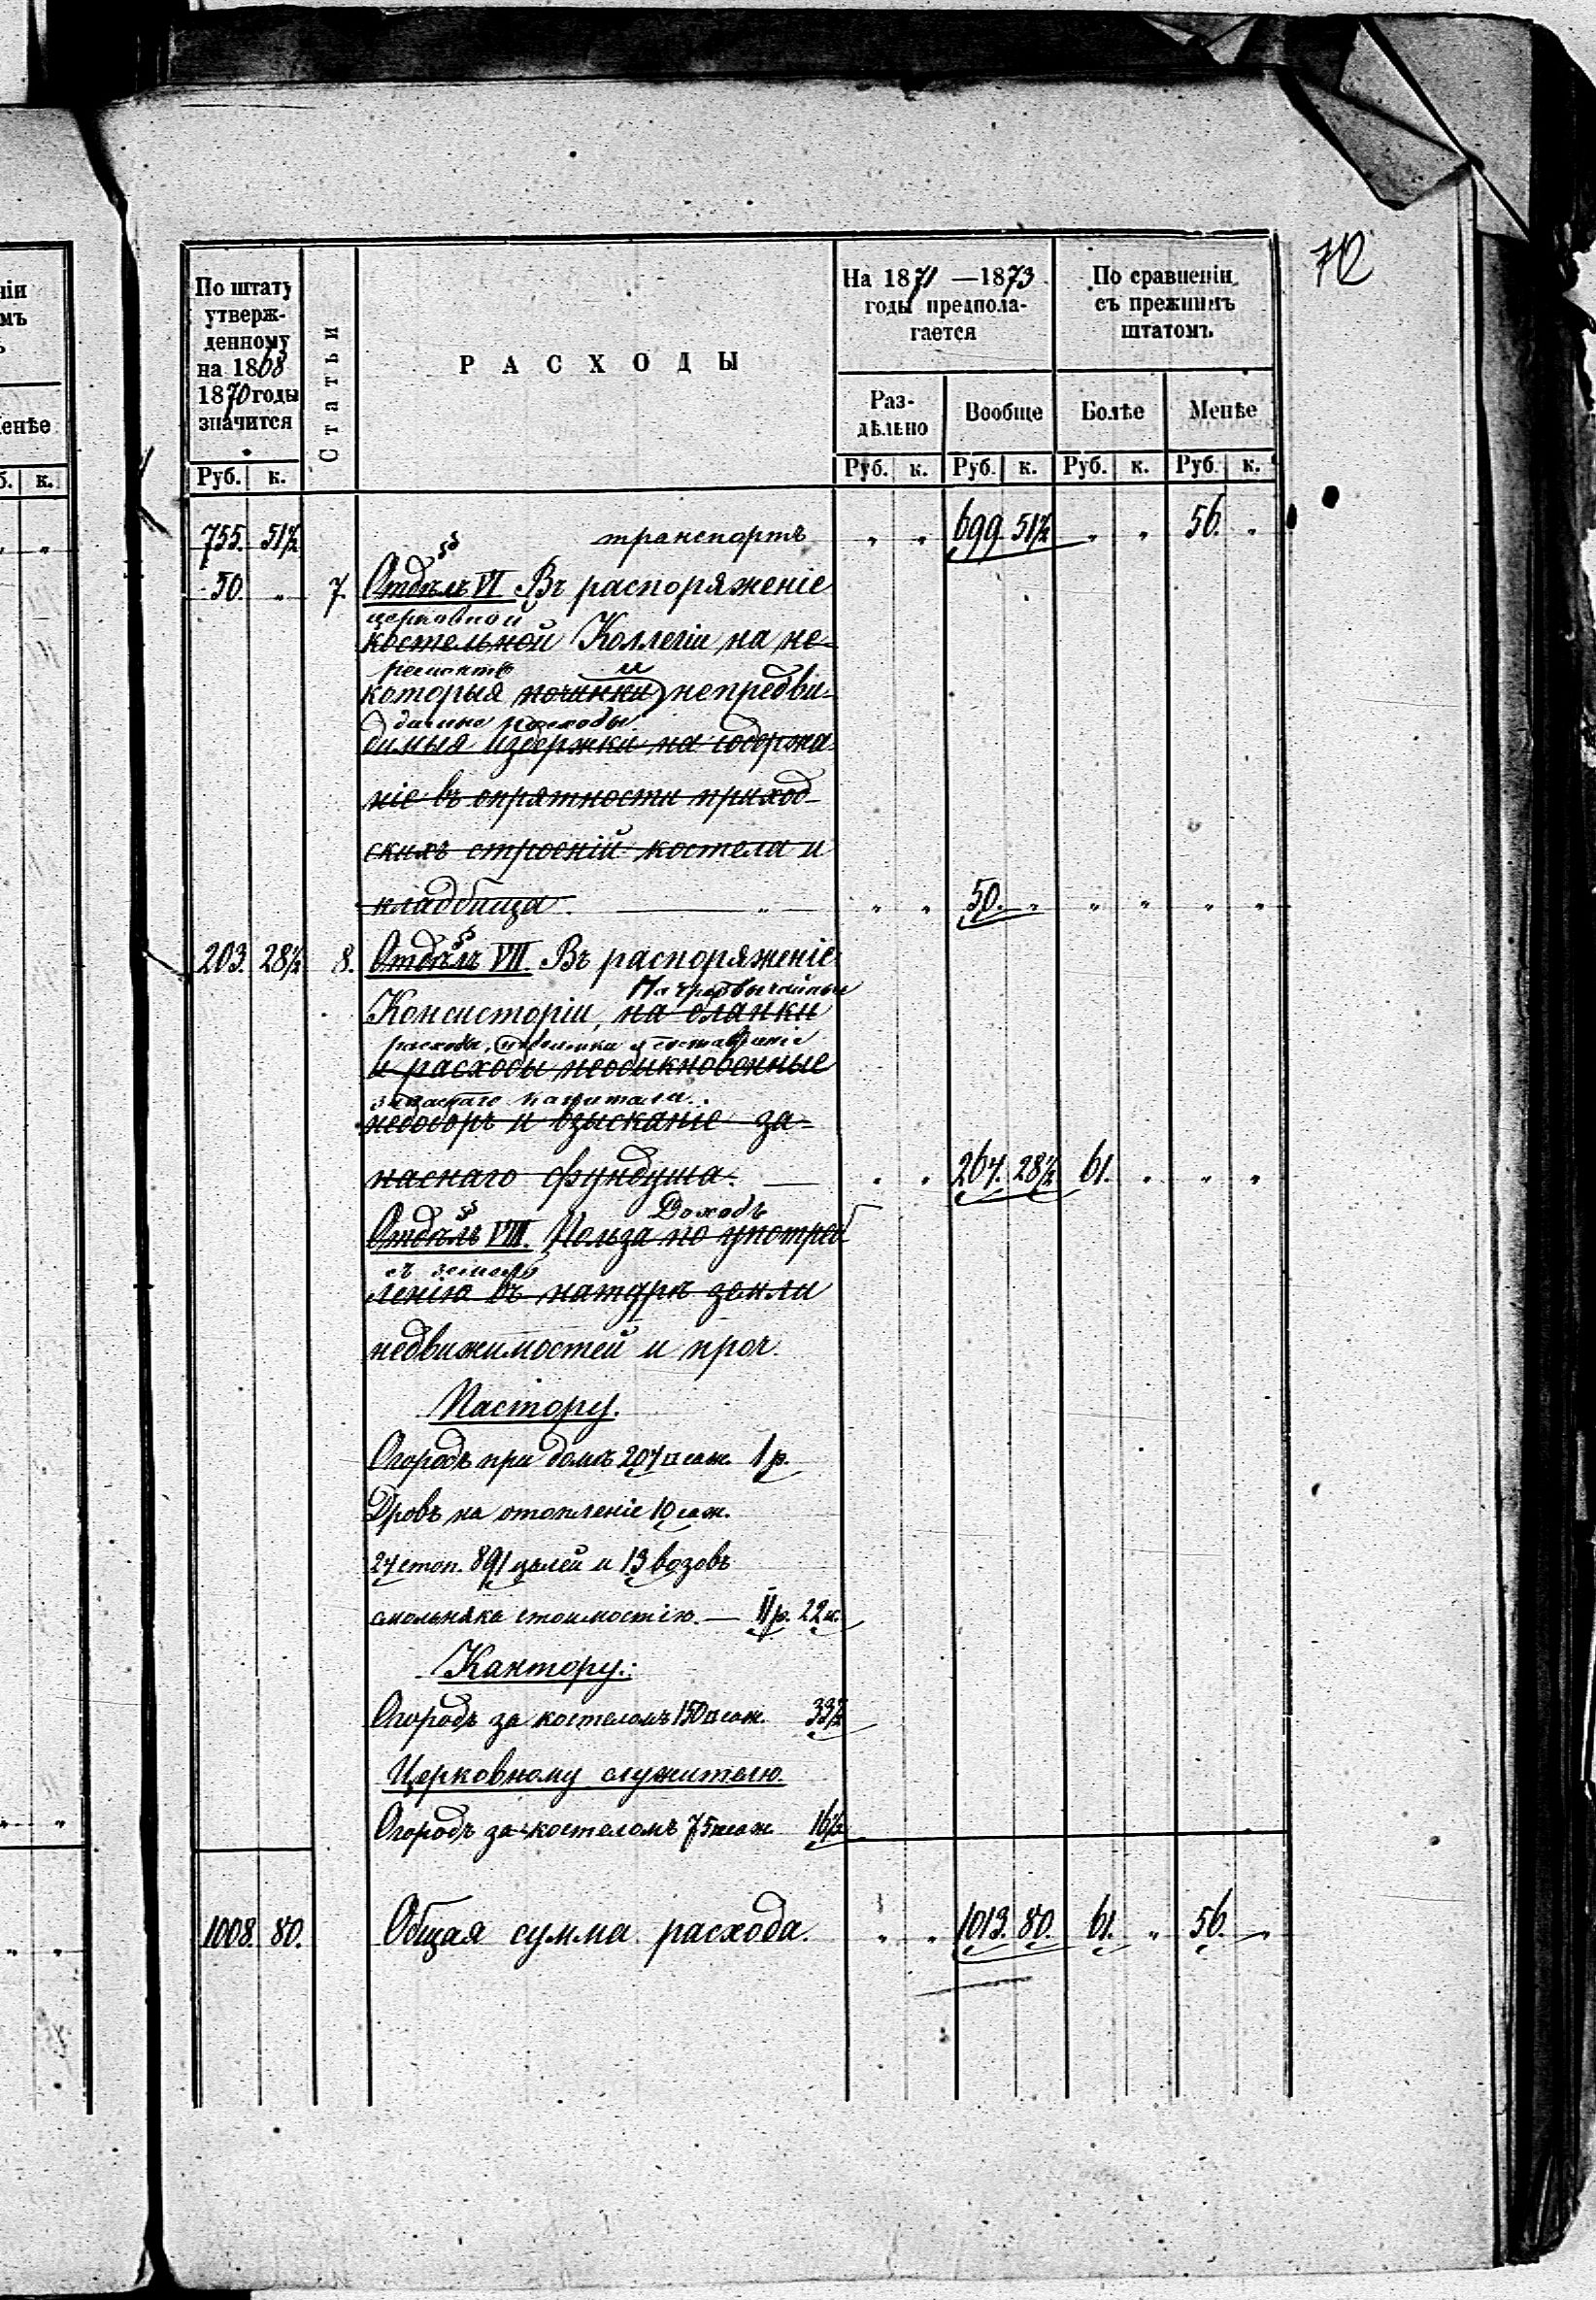 712
По штату
утверж-
денному
на 1868
1870 годы
значится
Статьи
РАСХОДЫ
На 1871 —1873
годы предпола-
гается
По сравненіи
съ прежнимъ
штатомъ.
Раз-
дѣльно
Вообще
Болѣе
Менѣе
Руб. к. Руб. к. Руб. к. Руб. к. Руб. к.
755. 51½ транспортъ „ „ 699. 51½ „ „ 56. „
§
50. „ 7. Отдѣлъ VI Въ распоряженіе
церковной
костельной Коллегіи на не-
ремонтъ и
которыя починки непредви-
данные расходы
димыя издержки на содержа-
ніе въ опрятности приход-
скихъ строеній костела и
кладбища. „ „ „ 50. „ „ „ „ „
§
203. 28½ 8. Отдѣлъ VII Въ распоряженіе
На чрезвычайные
Консисторіи, на бланки
расходы, и составленіе
и расходы необыкновенные
запаснаго капитала.
недоборъ и взысканіе за-
паснаго фундуша. „ „ 264. 28½ 61. „ „ „
§ Доходъ
Отдѣлъ VIII. Польза по употреб
съ земель
ленію въ натурѣ земли
недвижимостей и проч.
Пастору.
Огородъ при домѣ 204 □ саж. 1 р.
Дровъ на отопленіе 10 саж.
24 стоп. 891 цѣлей и 13 возовъ
смольняка стоимостію. — 11 р. 22 к.
Кантору:
Огородъ за костеломъ 150 □ саж. 33½
Церковному служителю.
Огородъ за костеломъ 75 □ саж 16½
1008. 80. Общая сумма расхода. „ „ 1013. 80. 61. „ 56. „
ніи
мъ
ъ
Менѣе
б. к.